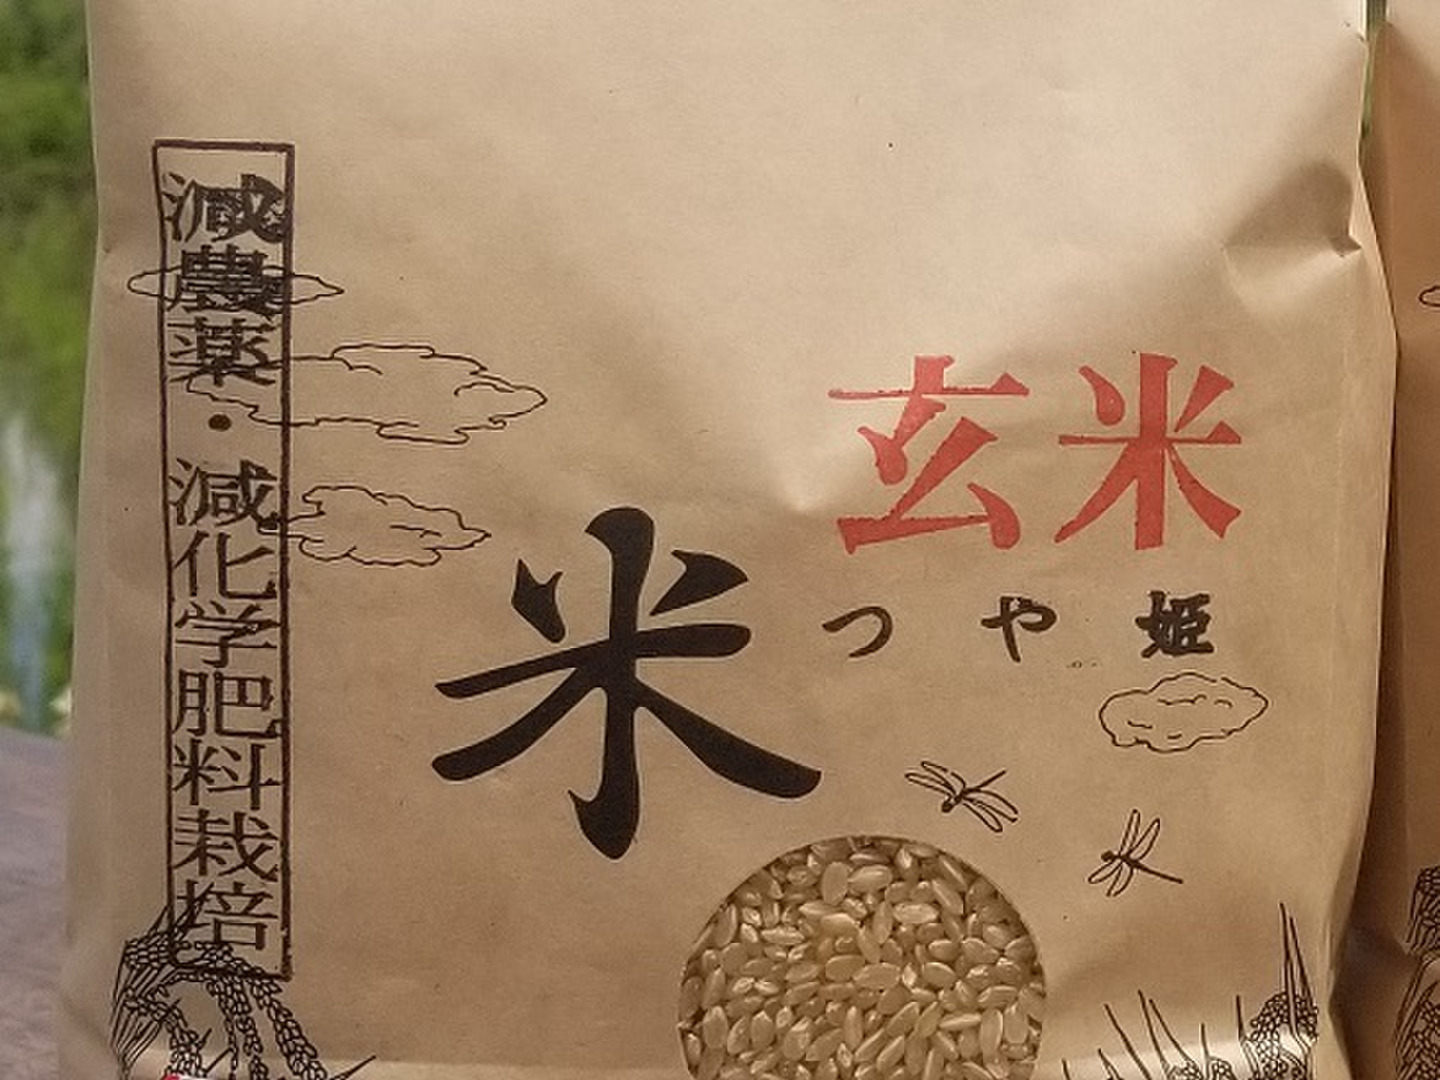 減農薬・減化学肥料栽培
玄米
米
つや姫